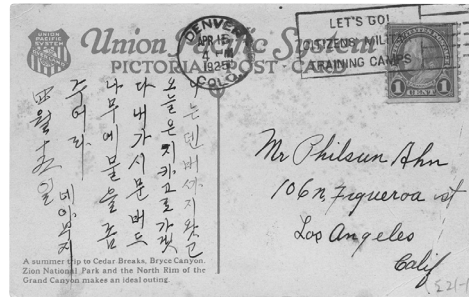 UNION
PACIFIC
SYSTEM
Union Pacific System
PICTORIAL POST-CARD
DENVER
APR 15
4
1925
COLO.
LET'S GO!
CITIZENS MILITARY
TRAINING CAMPS
1 CENT 1
나는덴버
오늘은 로가겟
다내가시문버드
나무에물을좀
주어라
四월十五일
Mr Philsun Ahn
106 n. Figueroa st
Los Angeles
Calif
A summer trip to Cedar Breaks, Bryce Canyon,
Zion National Park and the North Rim of the
Grand Canyon makes an ideal outing.